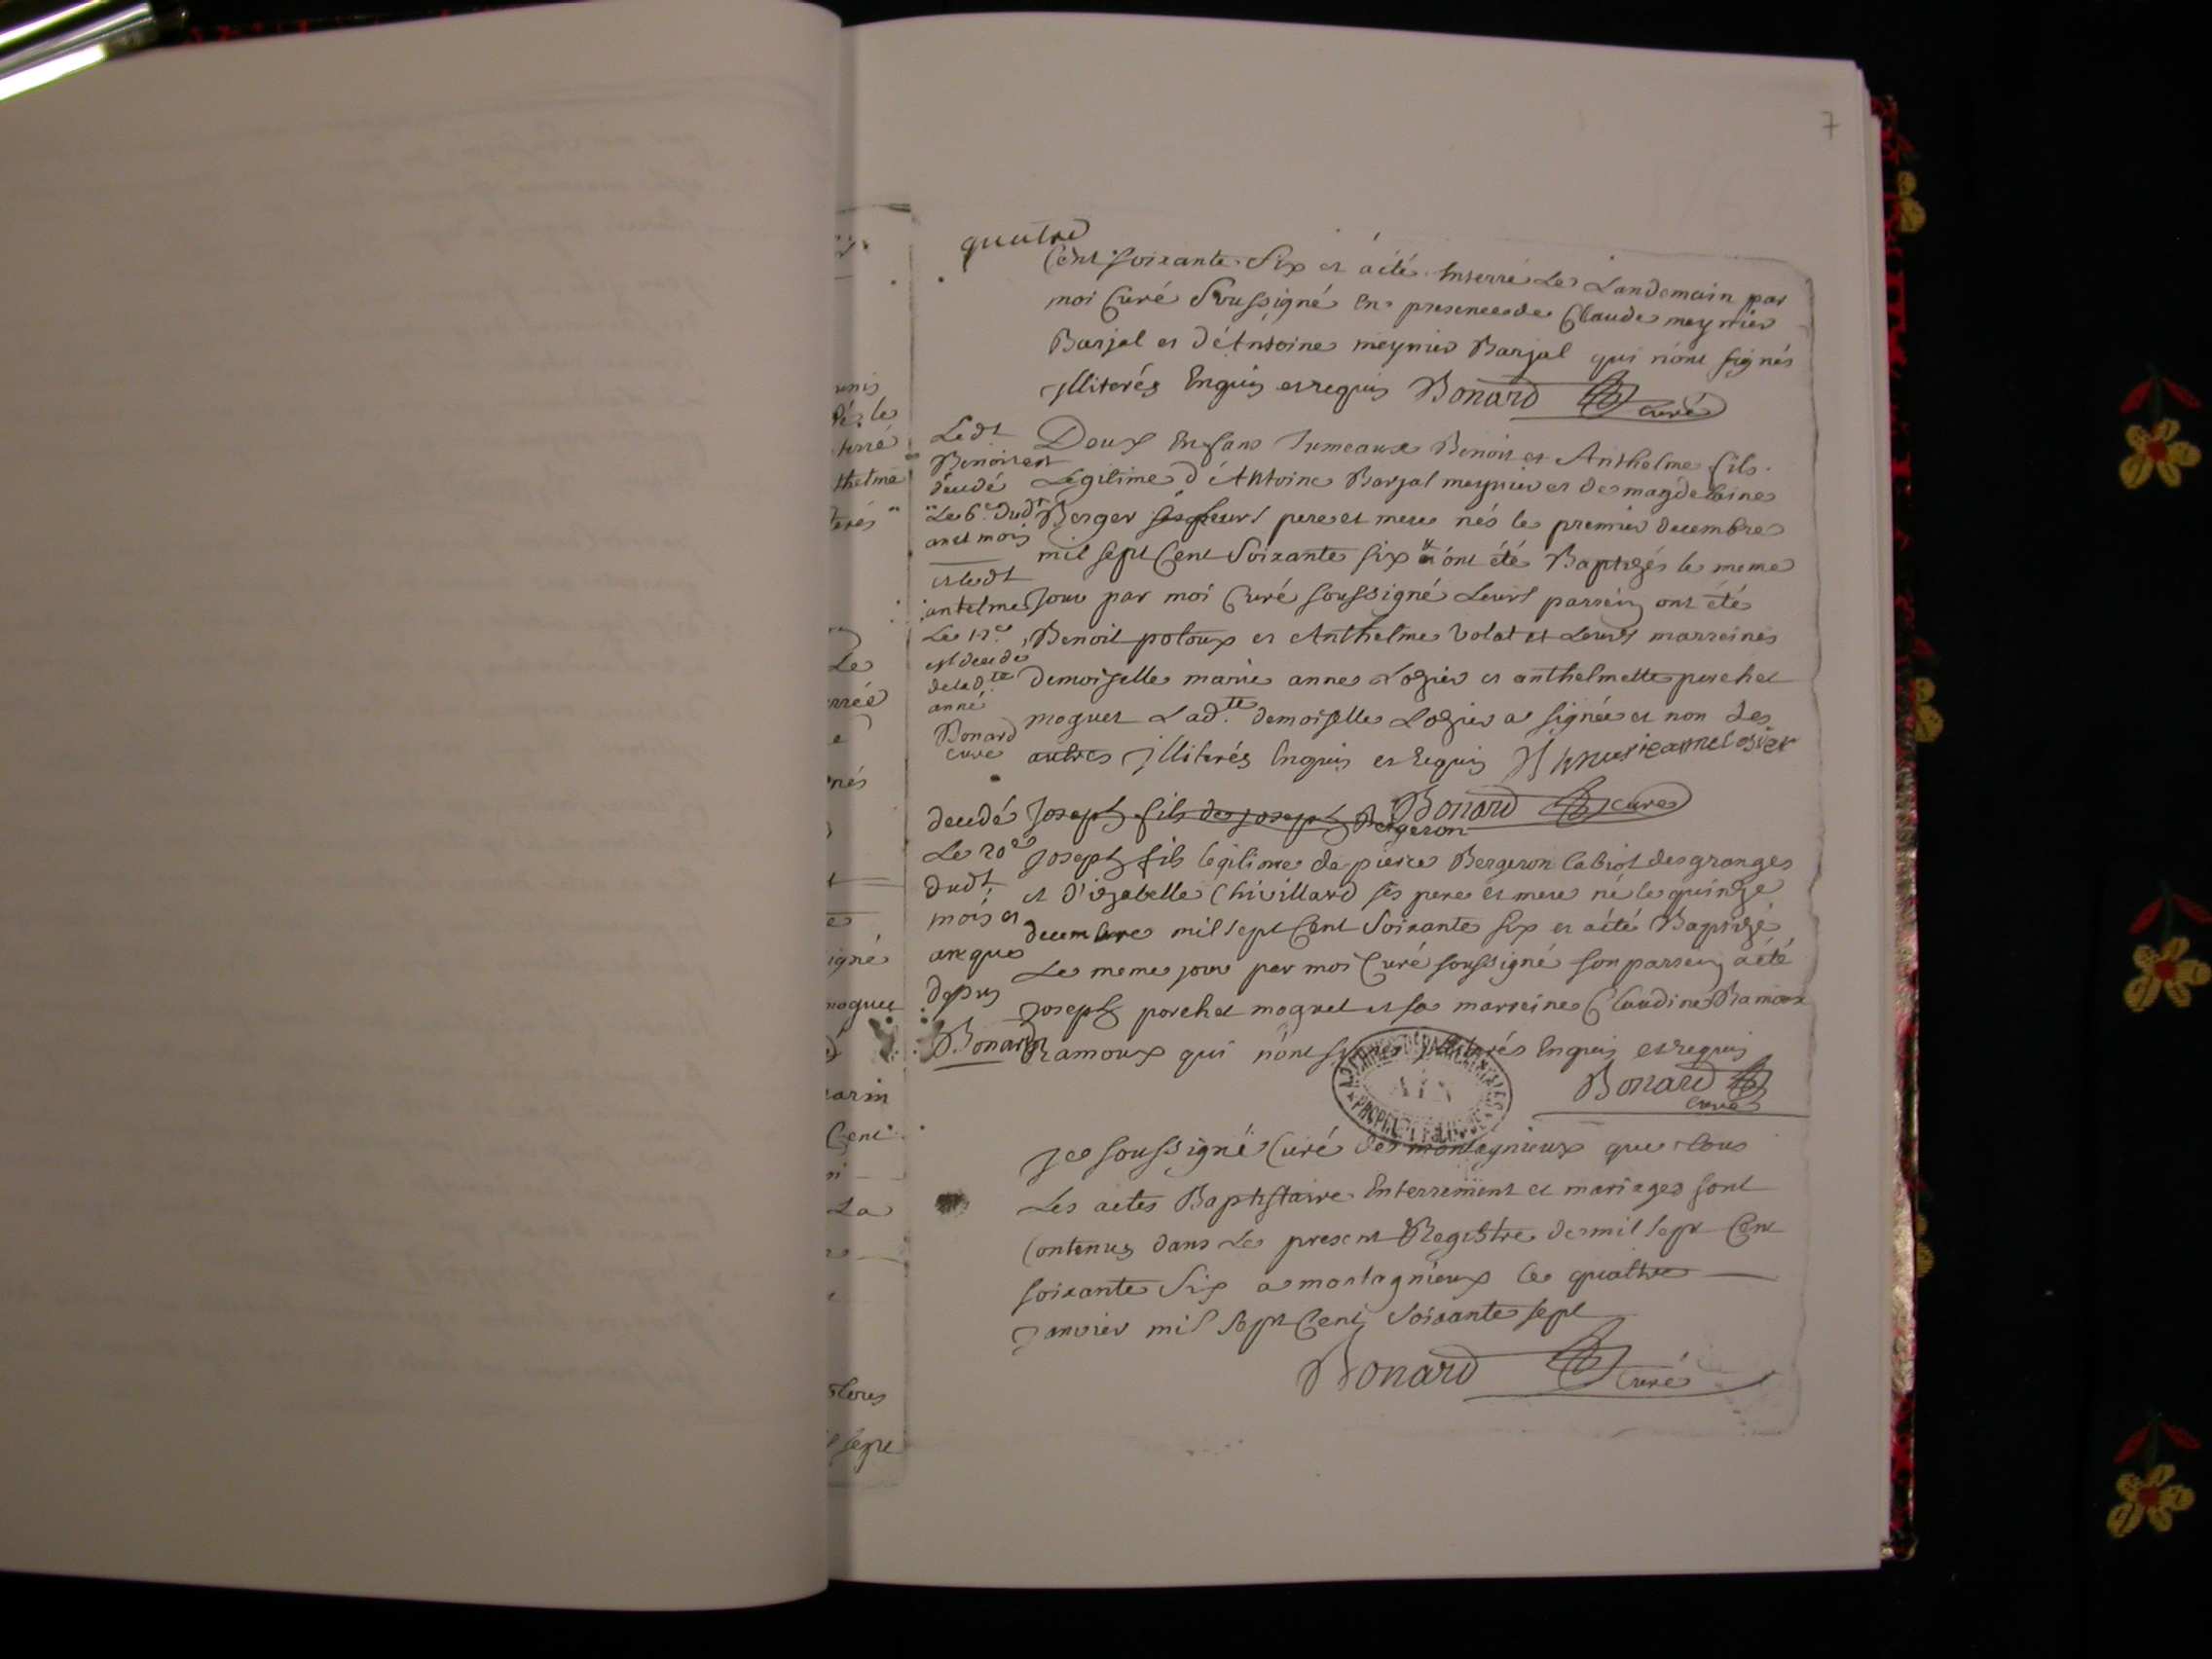 7
quatre
Cent soixante Six et a été Interré Le Landemain par
moi Curé Soussigné En presence de Claude meynier
Barjal et d'Antoine meynier Barjal qui n'ont signés
jlliterés Enquis et requis Bonard curé
Deux Enfans Jumeaux Benoit et Anthelme fils
Legitime d'Antoine Barjal meynier et de magdeleine
Berger pere et mere nés le premier decembre
mil sept Cent Soixante six ont été Baptizés le meme
Jour par moi Curé soussigné Leurs parrein ont été
Benoit poloux et Anthelme Volat et Leurs marreines
demoiselle marie anne Lozier et anthelmette perchet
moguet Lad.te demoiselle Lozier a signée et non Les
autres jlliterés Enquis et Requis marie anne Lozier
Bonard curé
Led.t
Benoit est
décédé
Le 6.e dud.t
an et mois
et led.t
antelme
Le 12.e
est décédé
de lad.te
anné
Bonard
curé
Joseph fils de joseph Bergeron
Joseph fils legitime de pierre Bergeron labiot des granges
et d'izabelle Chivillard ses pere et mere né le quinze
decembre mil sept Cent Soixante six et a été Baptizé
Le meme jour par moi Curé soussigné son parrein a été
joseph porchet moguet et sa marreine Claudine Ramoux
Ramoux qui n'ont signés jlliterés Enquis et requis
Bonard curé
decédé
Le 20e
dud.t
mois et
an que
dessus
Bonard
je soussigné Curé de montagnieux que tous
Les actes Baptistaire Enterrement et mariages sont
Contenus dans Le present Registre de mil sept Cent
soixante Six a montagnieux le quatre
janvier mil sept Cent Soixante sept
Bonard Curé